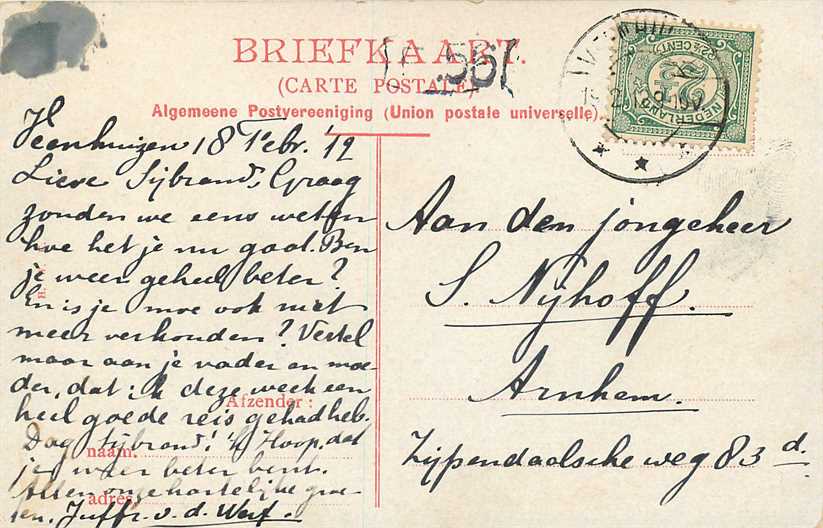 BRIEFKAART.
(CARTE POSTALE)
Algemeene Postvereeniging (Union postale universelle).
NEDERLAND
2½ CENT
Veenhuizen 18 Febr. '12
Lieve Sijbrand, Graag
zouden we eens weten
hoe het je nu gaat. Ben
je weer geheel beter?
En is je moe ook niet
meer verkouden? Vertel
maar aan je vader en moe-
der, dat ik deze week een
heel goede reis gehad heb.
Dag Sijbrand! Ik Hoop, dat
je weer beter bent.
Allen onze hartelijke groe-
ten, Juffr. v. d. Werf.
Afzender:
naam.
adres
Aan den jongeheer
S. Nijhoff.
Arnhem.
Zijpendaalsche weg 83 d.